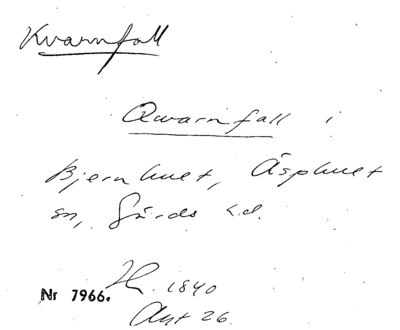 Kvarnfall
Qwarnfall i
Bjernhult, Äsphult
sn, Gärds h.d.
Nr 7966. 1840
Akt 26.